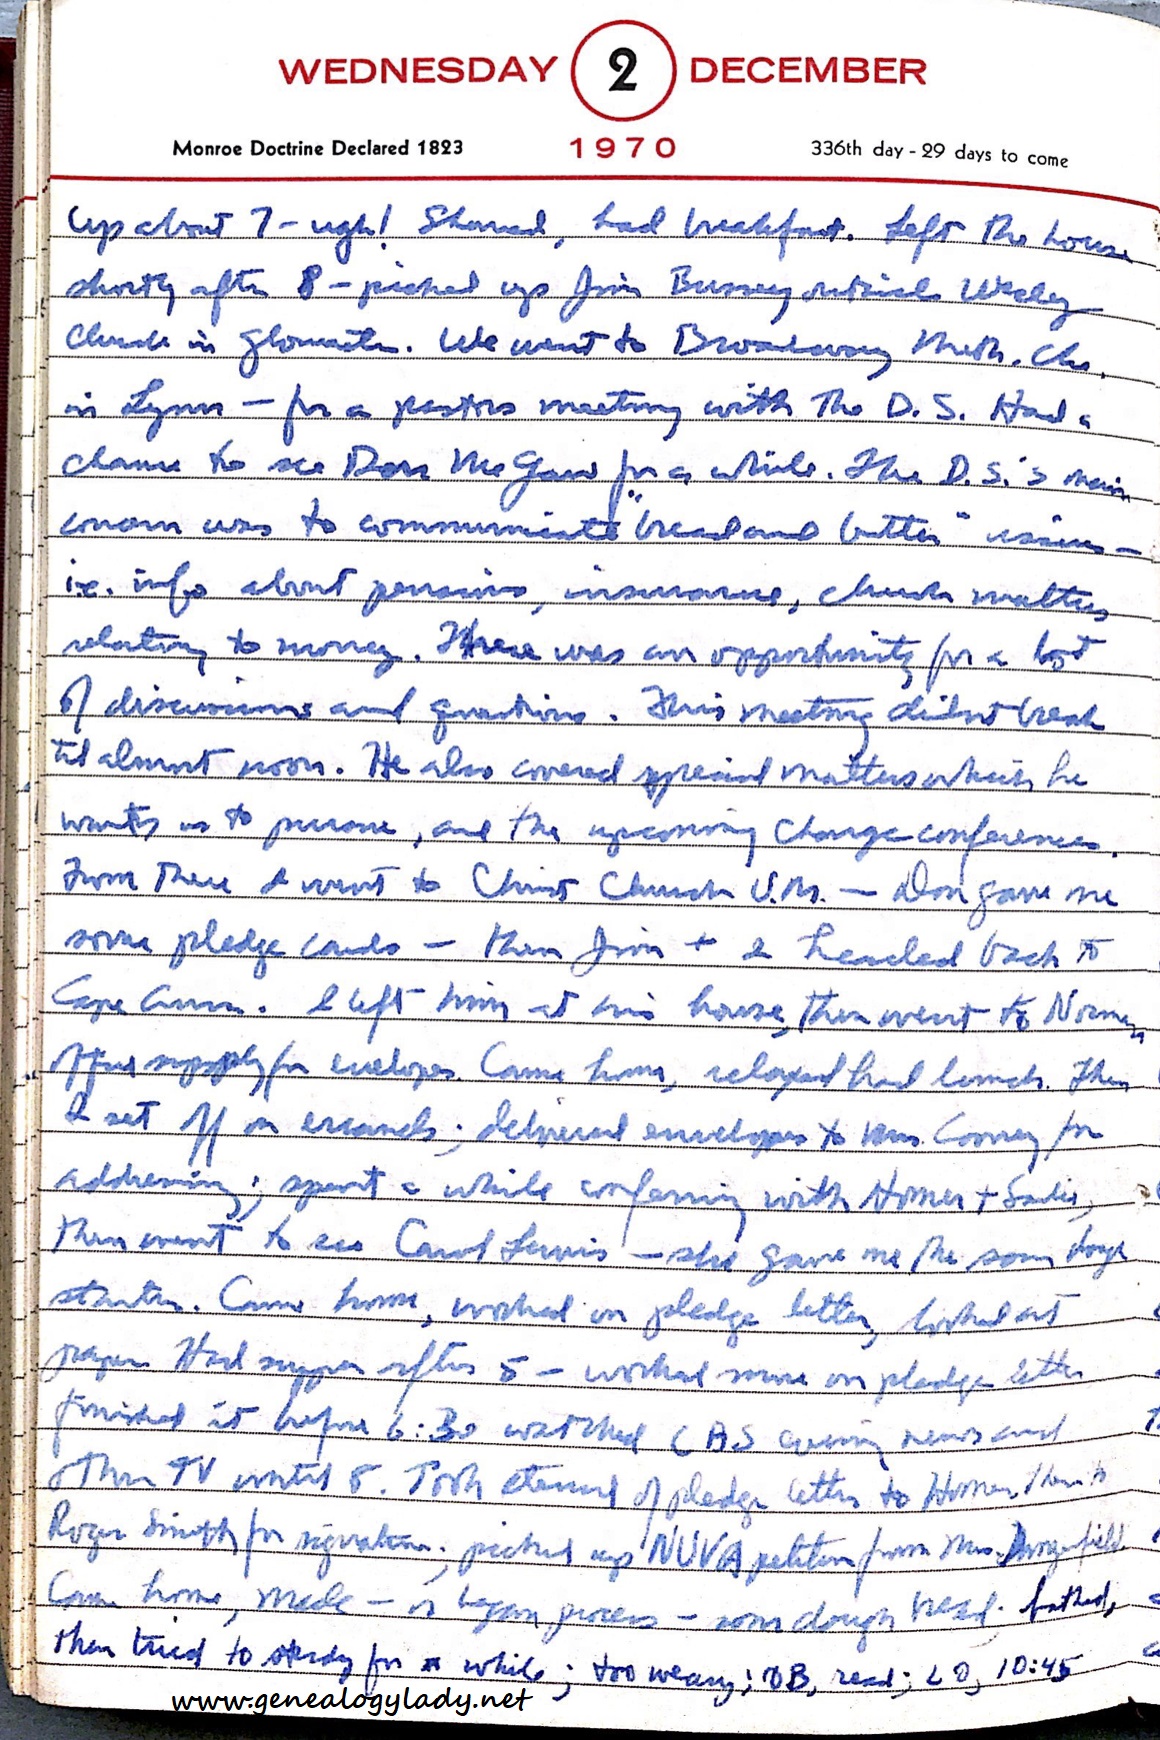 WEDNESDAY 2 DECEMBER
Monroe Doctrine Declared 1823 1970 336th day - 29 days to come
Up about 7 - ugh! Shaved, had breakfast. Left the house
shortly after 8 - picked up Jim Bussey outside Wesley
Church in Gloucester. We went to Broadway Meth. Ch.
in Lynn - for a pastors meeting with the D.S. Had a
chance to see Don McGaw for a while. The D.S.'s main
concern was to communicate "bread and butter" issues -
i.e. info about pensions, insurance, church matters
relating to money. There was an opportunity for a lot
of discussions and questions. This meeting didn't break
til almost noon. He also covered special matters which he
wants us to pursue, and the upcoming Charge conferences.
From there I went to Christ Church U.M. - Don gave me
some pledge cards - then Jim + I headed back to
Cape Ann. I left him at his house, then went to
office supply for envelopes. Came home, relaxed had lunch. Then
I set off on errands; delivered envelopes to Mrs. Cooney for
addressing; spent a while conferring with Homer + Sadie,
then went to see Carol Lewis - she gave me the sour dough
starter. Came home, worked on pledge letter, looked at
paper. Had supper after 5 - worked more on pledge letter
finished it before 6:30 watched CBS evening news and
other TV until 8. Took stencil of pledge letter to Homer, then to
Roger Smith for signature; picked up NUVA petition from Mrs. Dangerfield.
Came home, made - or began process - sour dough bread. bathed,
then tried to study for a while; too weary; OB, read; LO, 10:45
www.genealogylady.net